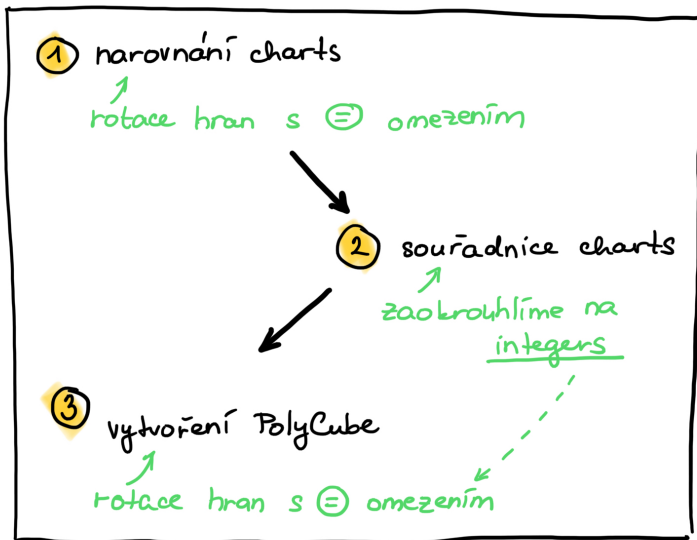 1 narovnání charts
rotace hran s = omezením
2 souřadnice charts
zaokrouhlíme na
integers
3 vytvoření PolyCube
rotace hran s = omezením